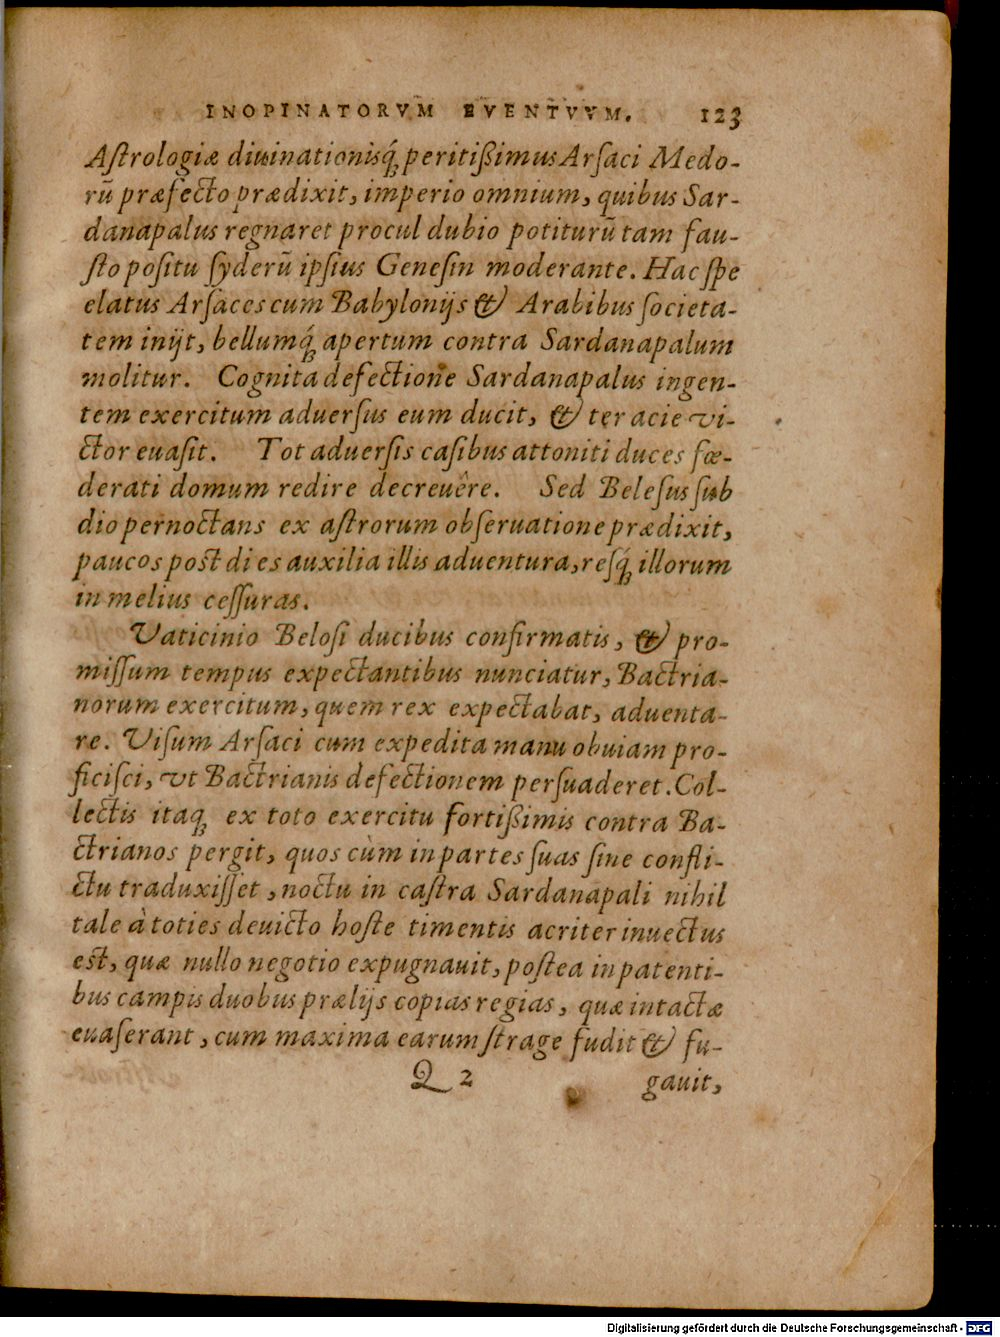 INOPINATORVM EVENTVVM. 123
Aſtrologiæ diuinationisq́ꝫ peritißimus Arſaci Medo-
rũ præfecto prædixit, imperio omnium, quibus Sar-
danapalus regnaret procul dubio potiturũ tam fau-
ſto poſitu ſyderũ ipſius Geneſin moderante. Hac ſpe
elatus Arſaces cum Babylonijs & Arabibus ſocieta-
tem inijt, bellumq́ꝫ apertum contra Sardanapalum
molitur. Cognita defectione Sardanapalus ingen-
tem exercitum aduerſus eum ducit, & ter acie vi-
ctor euaſit. Tot aduerſis caſibus attoniti duces fœ-
derati domum redire decreuêre. Sed Beleſus ſub
dio pernoctans ex aſtrorum obſeruatione prædixit,
paucos post dies auxilia illis aduentura, reſq́ꝫ illorum
in melius ceſſuras.
Vaticinio Beloſi ducibus confirmatis, & pro-
miſſum tempus expectantibus nunciatur, Bactria-
norum exercitum, quem rex expectabat, aduenta-
re. Viſum Arſaci cum expedita manu obuiam pro-
ficiſci, vt Bactrianis defectionem perſuaderet. Col-
lectis itaqꝫ ex toto exercitu fortißimis contra Ba-
ctrianos pergit, quos cùm in partes ſuas ſine confli-
ctu traduxiſſet, noctu in caſtra Sardanapali nihil
tale à toties deuicto hoſte timentis acriter inuectus
est, quæ nullo negotio expugnauit, poſtea in patenti-
bus campis duobus prælijs copias regias, quæ intactæ
euaſerant, cum maxima earum ſtrage fudit & fu-
Q 2 gauit,
Digitalisierung gefördert durch die Deutsche Forschungsgemeinschaft - DFG